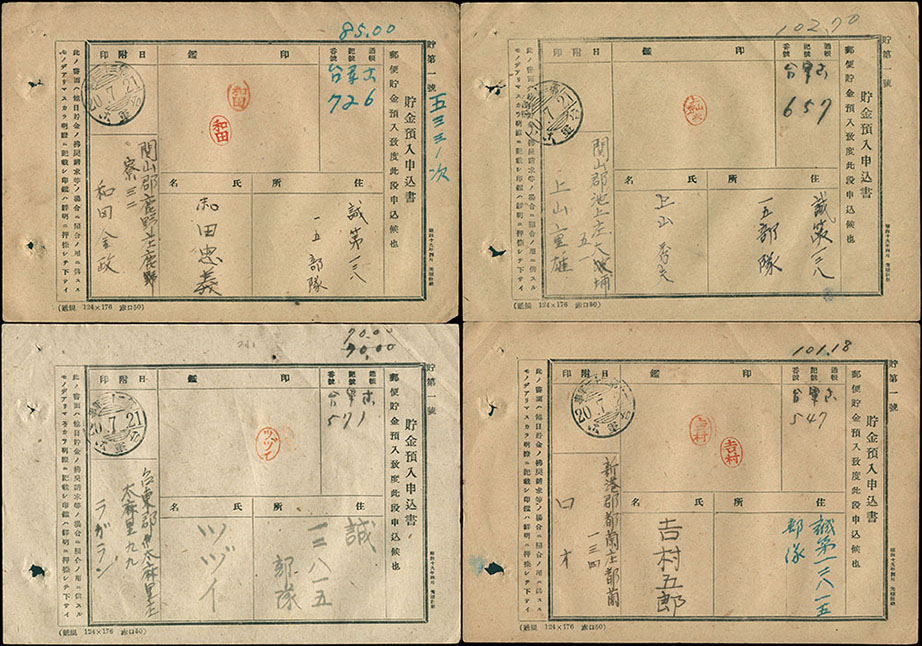 85.00
貯第一號
貯金預入申込書
郵便貯金預入致度此段申込候也
通帳記號番號
台軍古
726
五三三ノ次
印鑑
和田
和田
日附印
20.7.21
住所
誠第一三八一五部隊
氏名
和田忠義
関山郡鹿野庄鹿野
寮三二
和田金政
此ノ書面ハ他日貯金ノ拂戻請求等ノ場合ニ照合ノ用ニ供スル
モノデアリマスカラ明瞭ニ記載シ印鑑ハ鮮明ニ押捺シテ下サイ
(紙規 124×176 糸口50)
102.70
貯第一號
貯金預入申込書
郵便貯金預入致度此段申込候也
通帳記號番號
台軍古
657
印鑑
日附印
20.7.21
住所
誠第一三八一五部隊
氏名
上山
関山郡池上庄大坡埔
五一
上山重雄
此ノ書面ハ他日貯金ノ拂戻請求等ノ場合ニ照合ノ用ニ供スル
モノデアリマスカラ明瞭ニ記載シ印鑑ハ鮮明ニ押捺シテ下サイ
(紙規 124×176 糸口50)
70.00
70.00
貯第一號
貯金預入申込書
郵便貯金預入致度此段申込候也
通帳記號番號
台軍古
571
印鑑
ツヅイ
日附印
20.7.21
住所
誠一三八一五部隊
氏名
ツヅイ
台東郡太麻里庄
太麻里九九
ラガラン
此ノ書面ハ他日貯金ノ拂戻請求等ノ場合ニ照合ノ用ニ供スル
モノデアリマスカラ明瞭ニ記載シ印鑑ハ鮮明ニ押捺シテ下サイ
(紙規 124×176 糸口50)
101.18
貯第一號
貯金預入申込書
郵便貯金預入致度此段申込候也
通帳記號番號
台軍古
547
印鑑
吉村
吉村
日附印
20.7.21
住所
誠第一三八一五部隊
氏名
吉村五郎
新港郡都蘭庄都蘭
一三四
ロオ
此ノ書面ハ他日貯金ノ拂戻請求等ノ場合ニ照合ノ用ニ供スル
モノデアリマスカラ明瞭ニ記載シ印鑑ハ鮮明ニ押捺シテ下サイ
(紙規 124×176 糸口50)